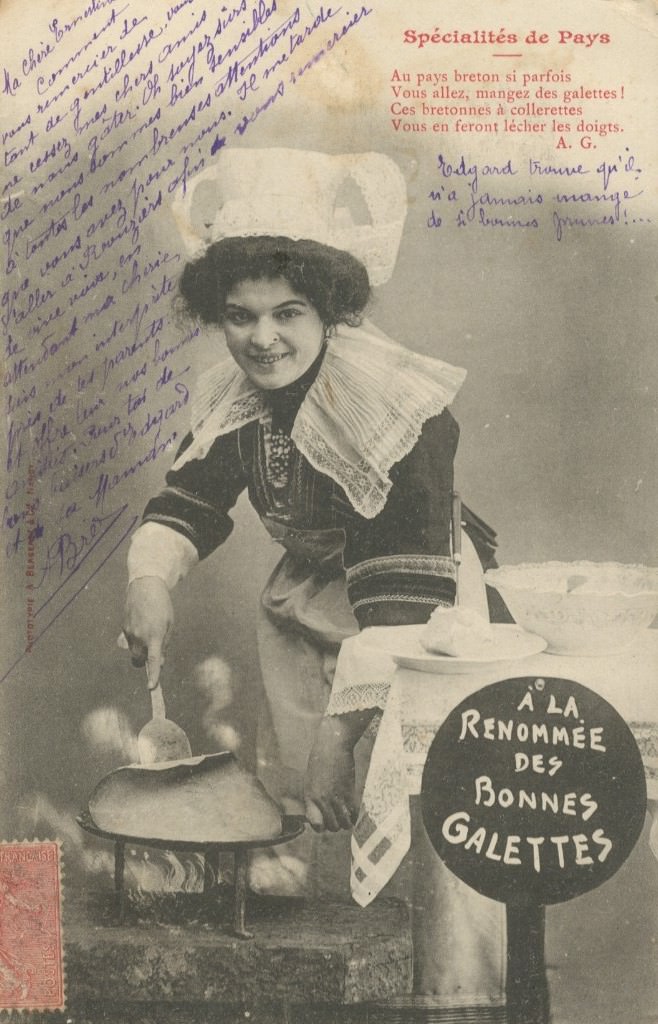 Spécialités de Pays
Au pays breton si parfois
Vous allez, mangez des galettes !
Ces bretonnes à collerettes
Vous en feront lécher les doigts.
A. G.
Edgard trouve qu'il
n'a jamais mangé
de si bonnes prunes !...
Ma chère Ernestine
Comment
vous remercier de
tant de gentillesse, vous
ne cessez mes chers amis
de nous gâter. Oh soyez sûrs
que nous sommes bien sensibles
à toutes les nombreuses attentions
que vous avez pour nous. Il me tarde
d'aller à afin de vous remercier
de vive voix, en
attendant ma chérie,
sois mon interprète
près de tes parents
et offre leur nos bonnes
Reçois tas de
bons baisers d'Edgard
et de ta
PHOTOTYPIE A. BERGERET & Cie, NANCY
À LA
RENOMMÉE
DES
BONNES
GALETTES
FRANÇAISE
POSTES